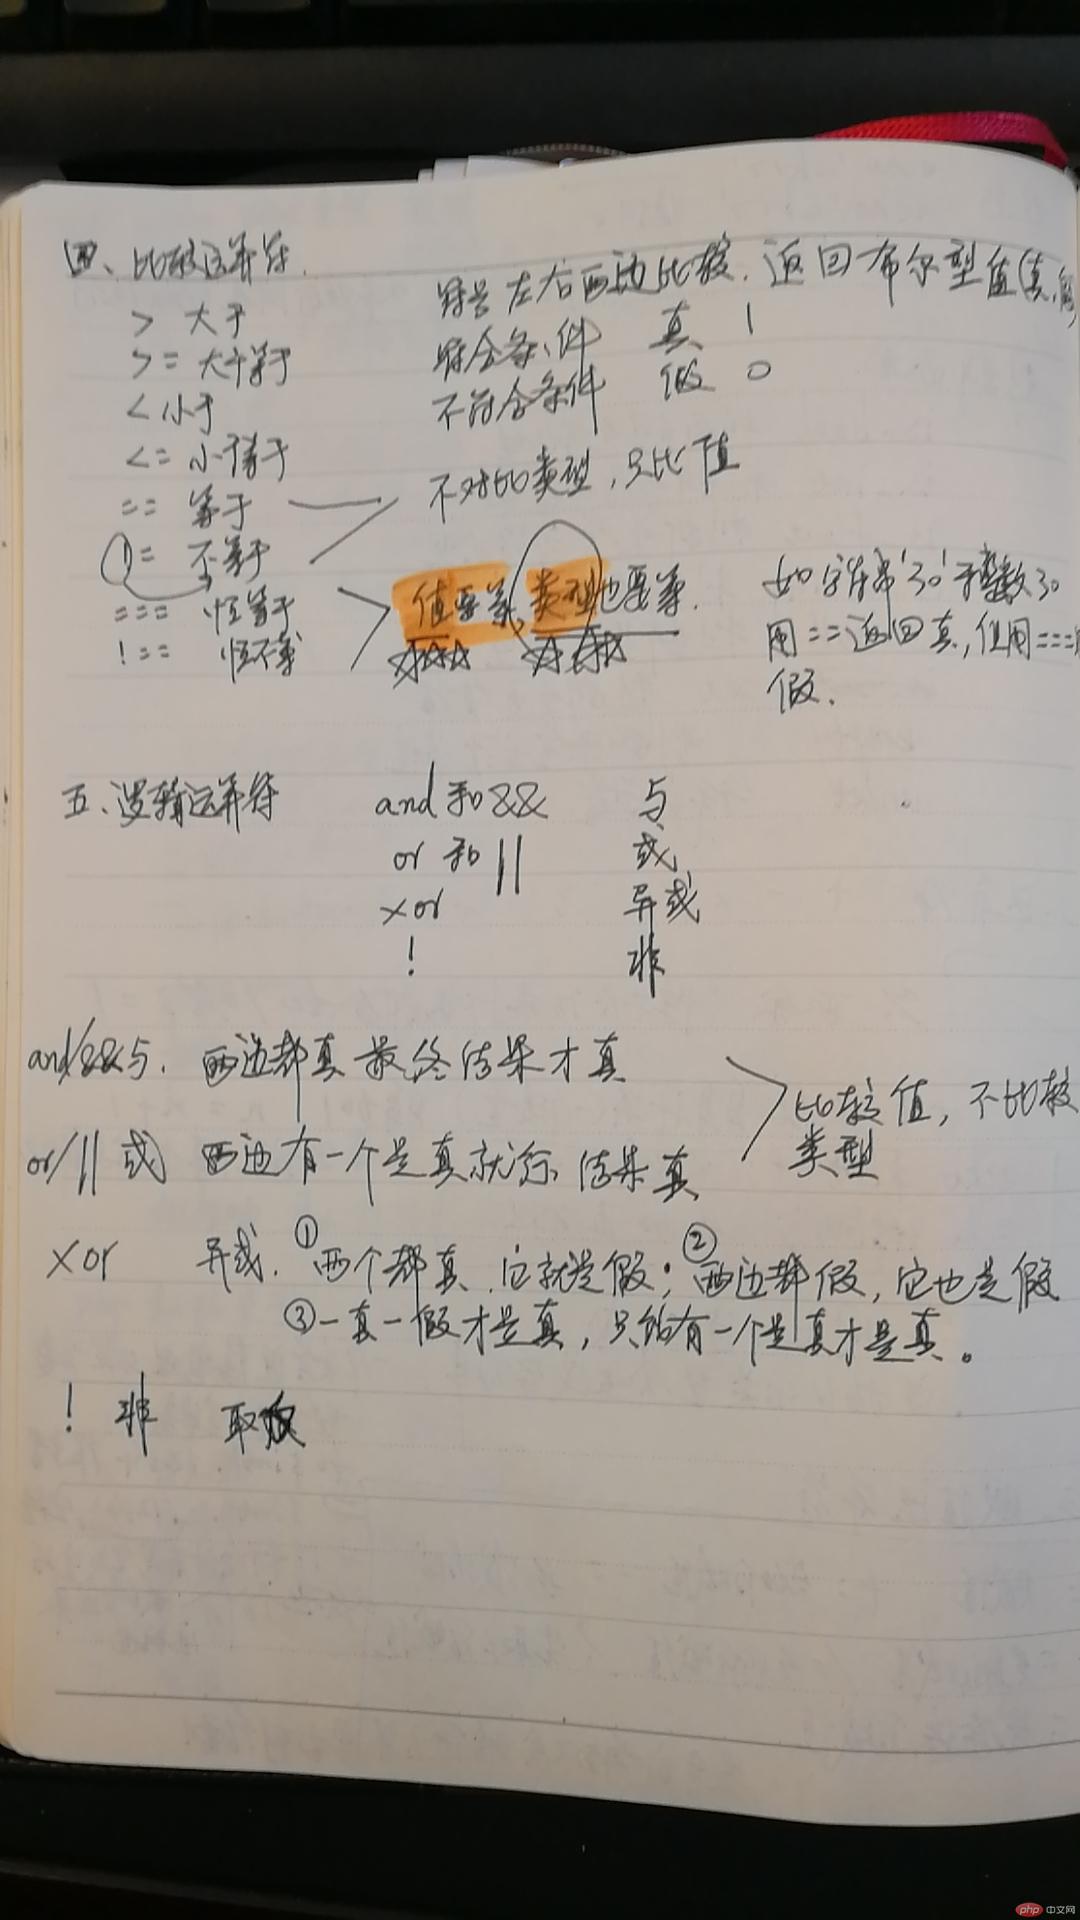 四、比较运算符
符号左右两边比较.返回布尔型值(真,
> 大于
符合条件 真 1
>= 大于等于
不符合条件 假 0
< 小于
<= 小于等于
不对比类型,只比值
== 等于
!= 不等于
=== 恒等于
值要等,类型也要等.
!== 恒不等
如字符串'30'于整数30
用==返回真,但用===
假.
五、逻辑运算符
and和&& 与
or 和 || 或
xor 异或
! 非
and/&&与. 两边都真最终结果才真
or/|| 或 两边有一个是真就行 结果真
比较值,不比较
类型
xor 异或. ①两个都真,它就是假;②两边都假,它也是假
③一真一假才是真,只能有一个是真才是真。
! 非 取
php 中文网